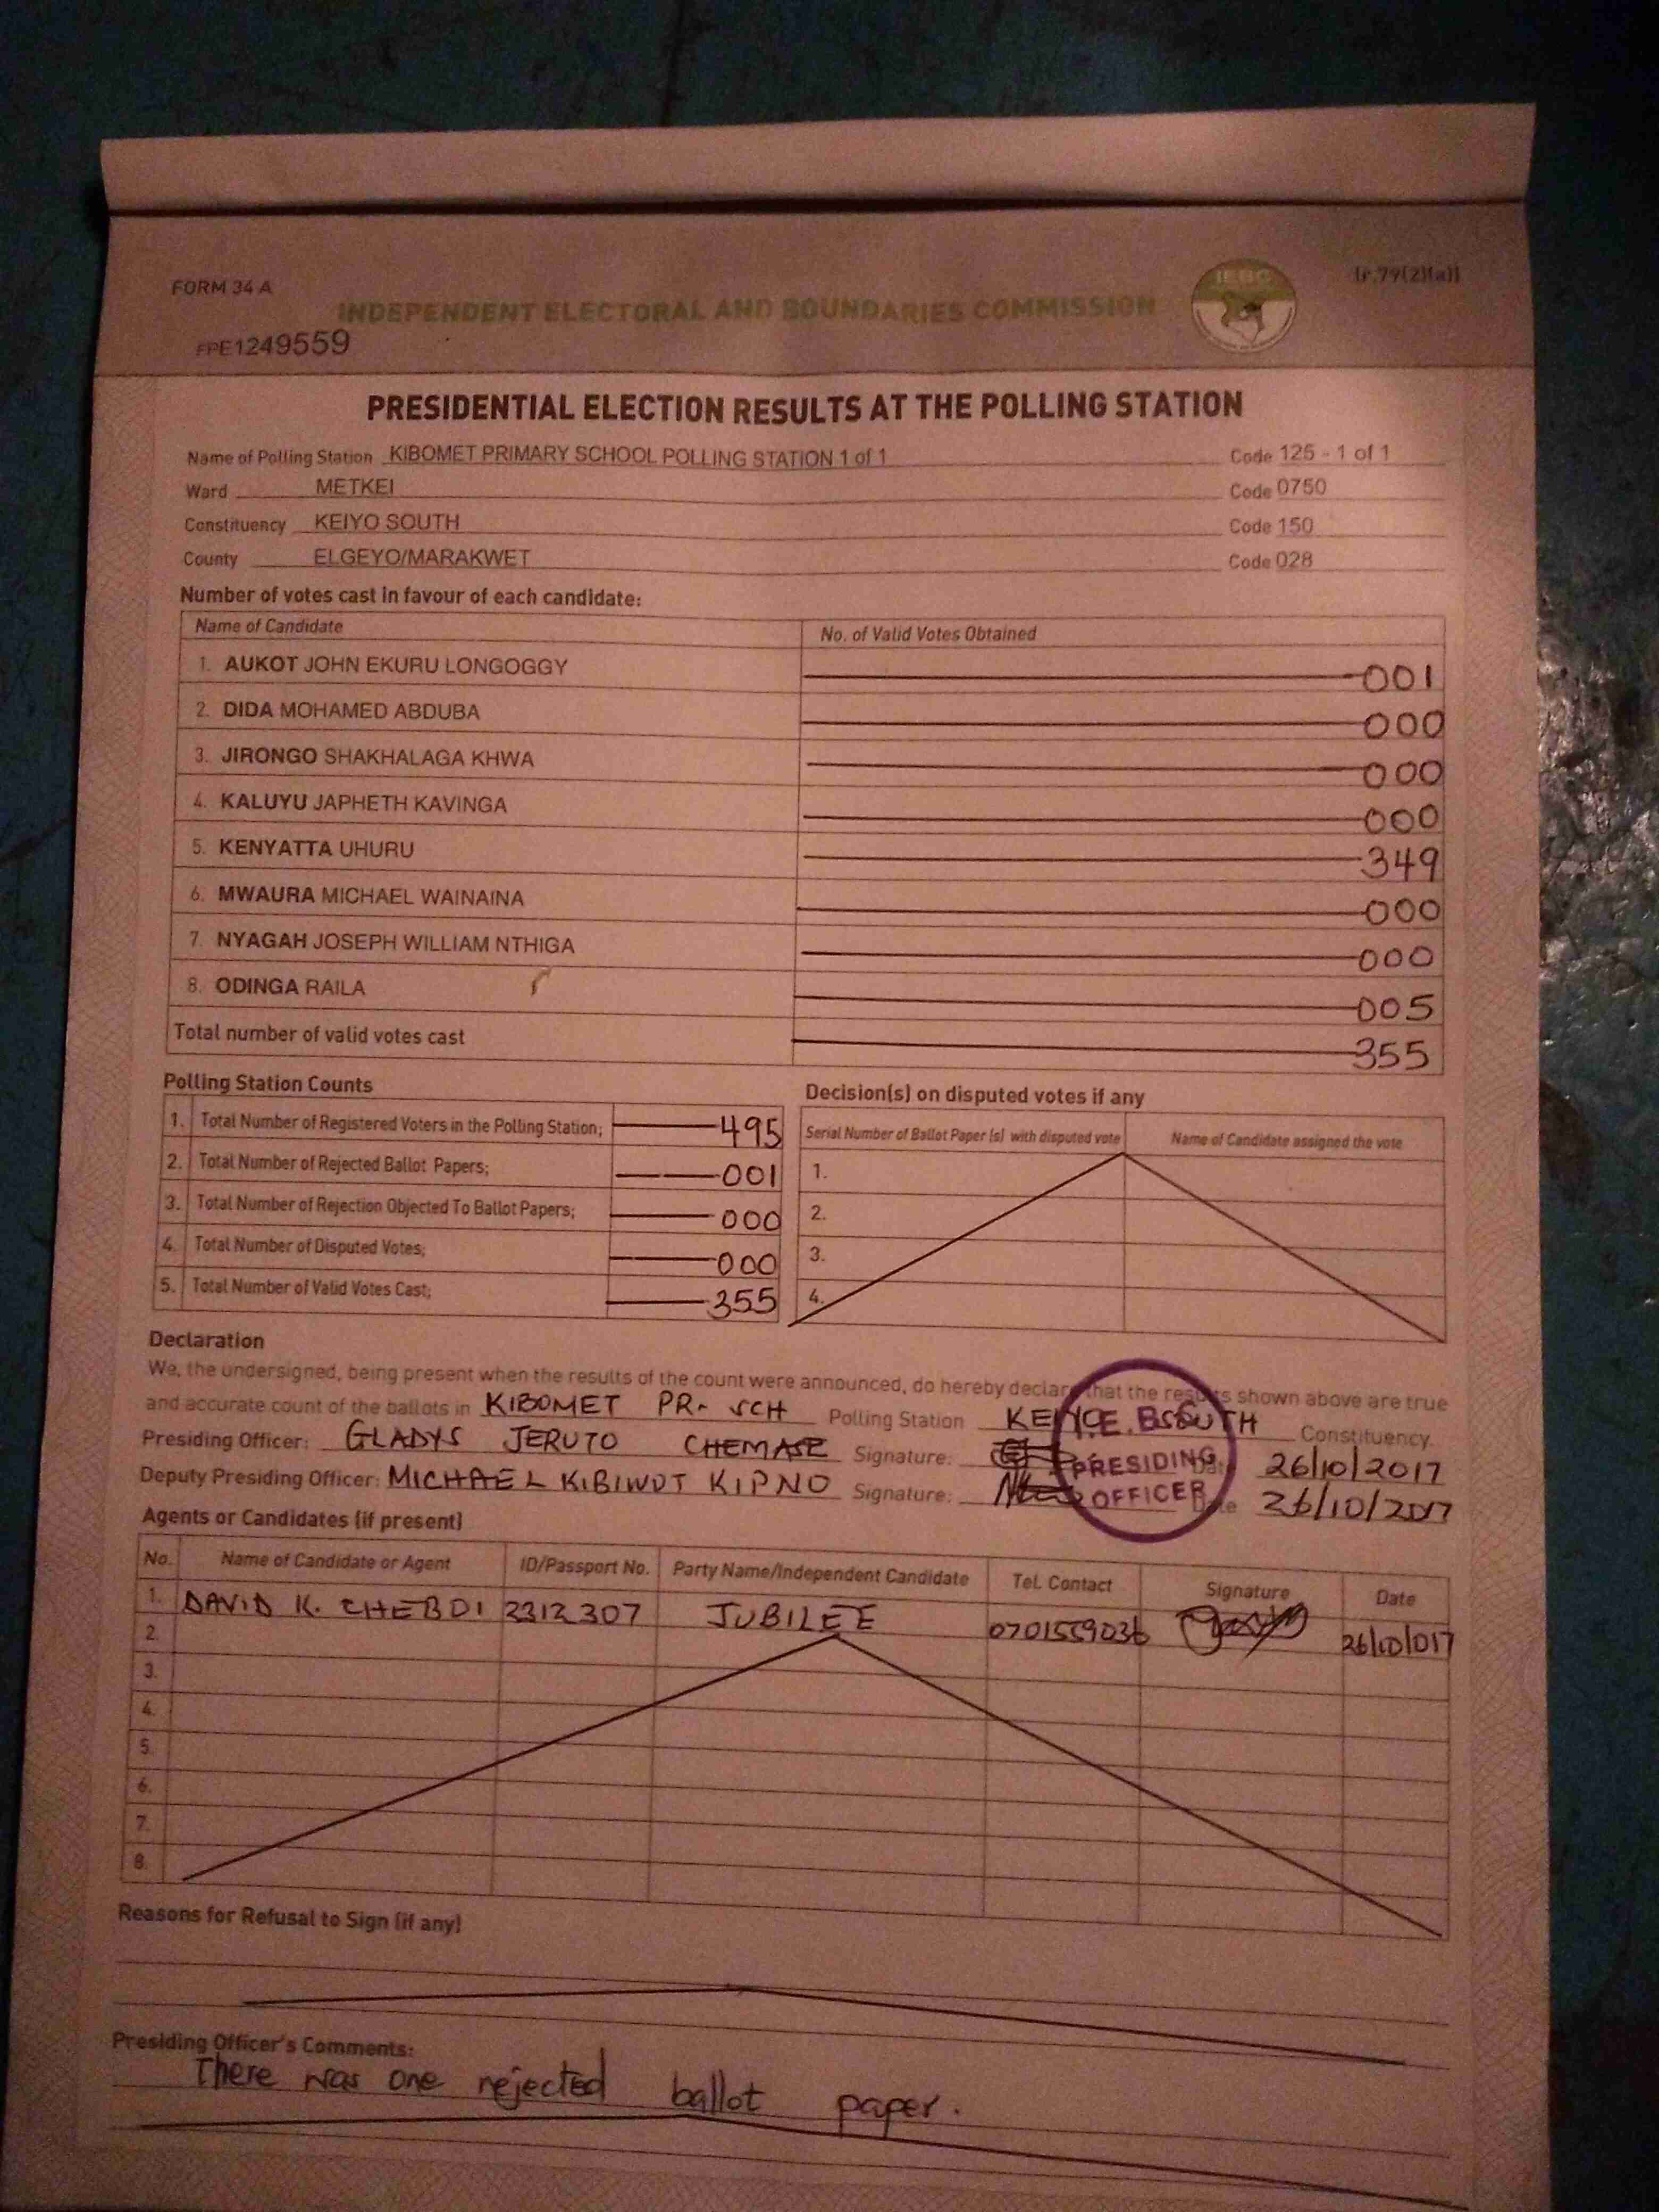 FORM 34 A
(r.79(2)(a))
INDEPENDENT ELECTORAL AND BOUNDARIES COMMISSION
IEBC
FPE1249559
PRESIDENTIAL ELECTION RESULTS AT THE POLLING STATION
Name of Polling Station KIBOMET PRIMARY SCHOOL POLLING STATION 1 of 1 Code 125 - 1 of 1
Ward METKEI Code 0750
Constituency KEIYO SOUTH Code 150
County ELGEYO/MARAKWET Code 028
Number of votes cast in favour of each candidate:
Name of Candidate No. of Valid Votes Obtained
1. AUKOT JOHN EKURU LONGOGGY 001
2. DIDA MOHAMED ABDUBA 000
3. JIRONGO SHAKHALAGA KHWA 000
4. KALUYU JAPHETH KAVINGA 000
5. KENYATTA UHURU 349
6. MWAURA MICHAEL WAINAINA 000
7. NYAGAH JOSEPH WILLIAM NTHIGA 000
8. ODINGA RAILA 005
Total number of valid votes cast 355
Polling Station Counts
1. Total Number of Registered Voters in the Polling Station; 495
2. Total Number of Rejected Ballot Papers; 001
3. Total Number of Rejection Objected To Ballot Papers; 000
4. Total Number of Disputed Votes; 000
5. Total Number of Valid Votes Cast; 355
Decision(s) on disputed votes if any
Serial Number of Ballot Paper (s) with disputed vote Name of Candidate assigned the vote
1.
2.
3.
4.
Declaration
We, the undersigned, being present when the results of the count were announced, do hereby declare that the results shown above are true
and accurate count of the ballots in KIBOMET PR. SCH Polling Station KEIYO SOUTH Constituency.
Presiding Officer: GLADYS JERUTO CHEMASE Signature: Date 26/10/2017
Deputy Presiding Officer: MICHAEL KIBIWOT KIPNO Signature: Date 26/10/2017
I.E.B.C
PRESIDING
OFFICER
Agents or Candidates (if present)
No. Name of Candidate or Agent ID/Passport No. Party Name/Independent Candidate Tel. Contact Signature Date
1. DAVID K. CHEBOI 2312307 JUBILEE 0701559036 26/10/017
2.
3.
4.
5.
6.
7.
8.
Reasons for Refusal to Sign (if any)
Presiding Officer's Comments:
There was one rejected ballot paper.